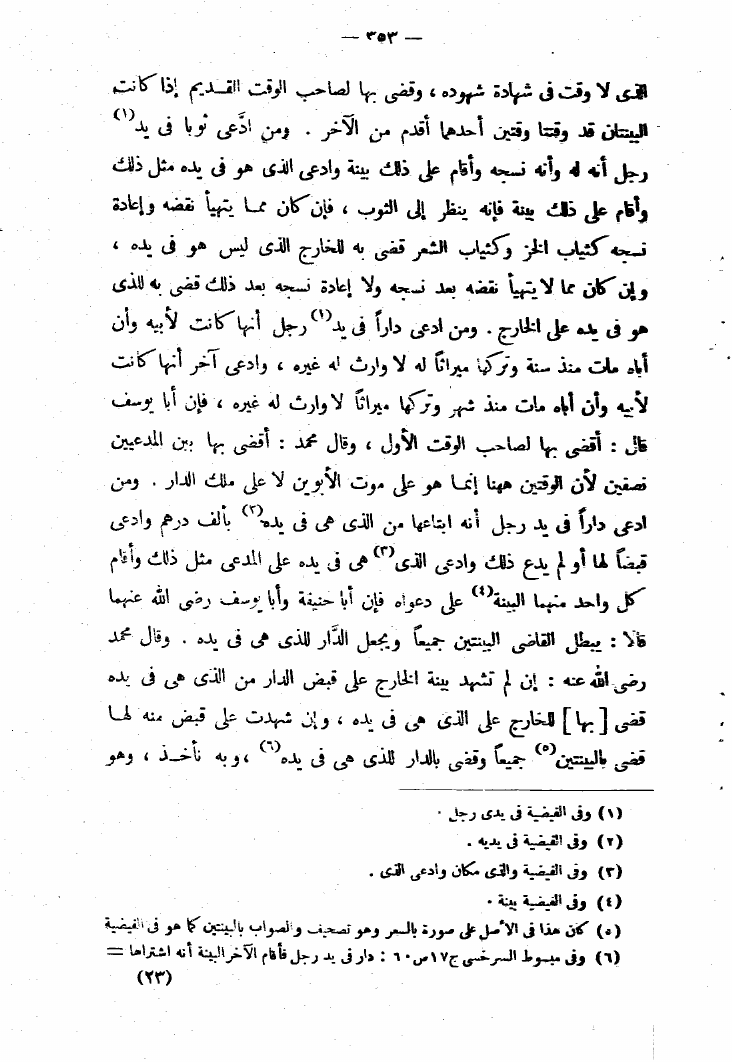 — ٣٥٣ —
الذى لا وقت فى شهادة شهوده ، وقضى بها لصاحب الوقت القديم إذا كانت
البينتان قد وقتتا وقتين أحدهما أقدم من الآخر . ومن ادَّعى ثوبا فى يد(١)
رجل أنه له وأنه نسجه وأقام على ذلك بينة وادعى الذى هو فى يده مثل ذلك
وأقام على ذلك بينة فإنه ينظر إلى الثوب ، فإن كان مما يتهيأ نقضه وإعادة
نسجه كثياب الخز وكثياب الشعر قضى به للخارج الذى ليس هو فى يده ،
وإن كان مما لا يتهيأ نقضه بعد نسجه ولا إعادة نسجه بعد ذلك قضى به للذى
هو فى يده على الخارج . ومن ادعى داراً فى يد(١) رجل أنها كانت لأبيه وأن
أباه مات منذ سنة وتركها ميراثاً له لا وارث له غيره ، وادعى آخر أنها كانت
لأبيه وأن أباه مات منذ شهر وتركها ميراثاً لا وارث له غيره ، فإن أبا يوسف
قال : أقضى بها لصاحب الوقت الأول ، وقال محمد : أقضى بها بين المدعيين
نصفين لأن الوقتين ههنا إنما هو على موت الأبوين لا على ملك الدار . ومن
ادعى داراً فى يد رجل أنه ابتاعها من الذى هى فى يده(٢) بألف درهم وادعى
قبضاً لها أو لم يدع ذلك وادعى الذى(٣) هى فى يده على المدعى مثل ذلك وأقام
كل واحد منهما البينة(٤) على دعواه فإن أبا حنيفة وأبا يوسف رضى الله عنهما
قالا : يبطل القاضى البينتين جميعاً ويجعل الدَّار للذى هى فى يده . وقال محمد
رضى الله عنه : إن لم تشهد بينة الخارج على قبض الدار من الذى هى فى يده
قضى [ بها ] للخارج على الذى هى فى يده ، وإن شهدت على قبض منه لها
قضى بالبينتين(٥) جميعاً وقضى بالدار للذى هى فى يده(٦) ، وبه نأخذ ، وهو
(١) وفى الفيضية فى يدى رجل .
(٢) وفى الفيضية فى يديه .
(٣) وفى الفيضية والذى مكان وادعى الذى .
(٤) وفى الفيضية بينة .
(٥) كان هذا فى الأصل على صورة بالسعر وهو تصحيف والصواب بالبينتين كما هو فى الفيضية
(٦) وفى مبسوط السرخسى ج١٧ ص٦٠ : دار فى يد رجل فأقام الآخر البينة أنه اشتراها =
(٢٣)